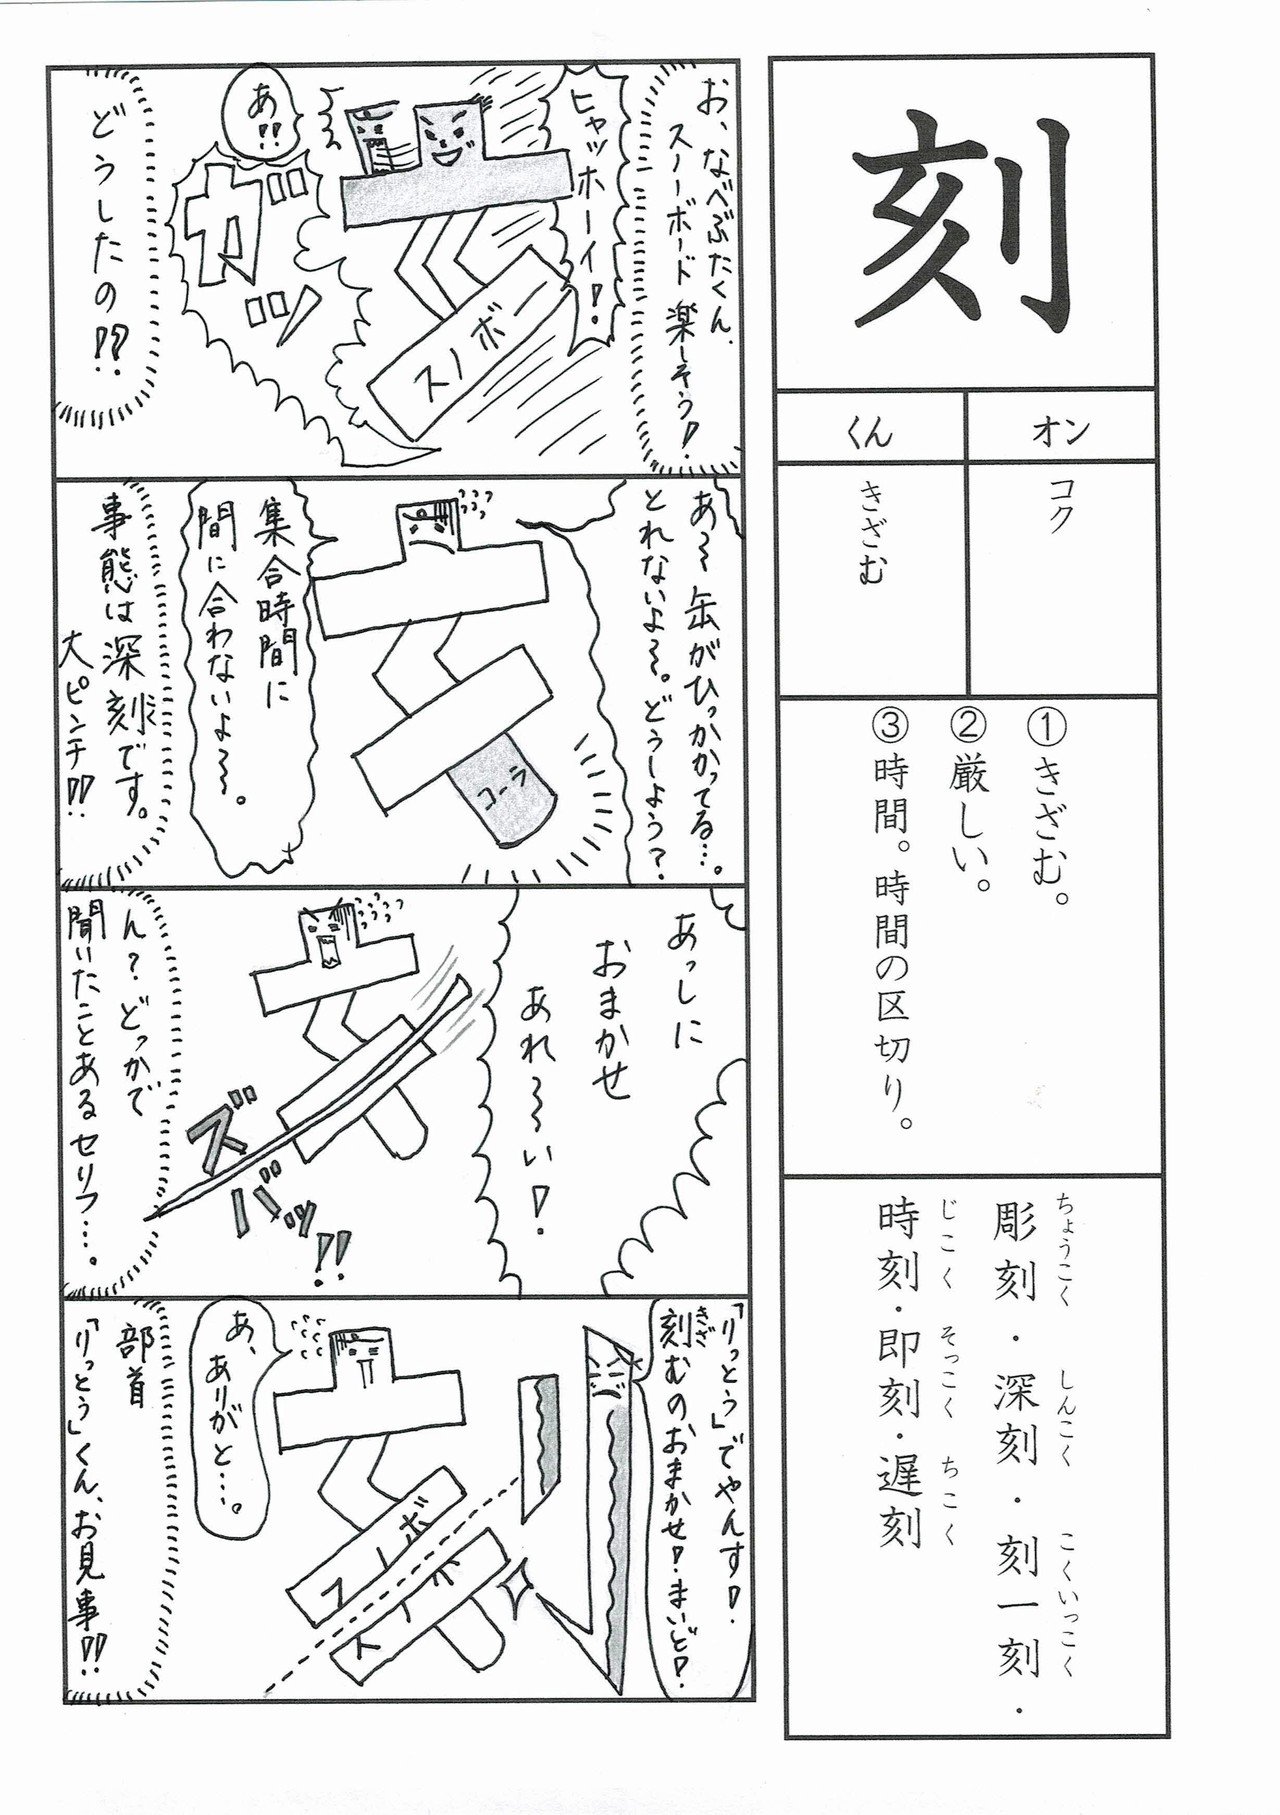 刻
オン
コク
くん
きざむ
①きざむ。
②厳しい。
③時間。時間の区切り。
ちょうこく しんこく こくいっこく
彫刻・深刻・刻一刻・
じこく そっこく ちこく
時刻・即刻・遅刻
お、なべぶたくん、
スノーボード楽しそう!
ヒャッホーイ!
スノボー
あ!!
ガッ
どうしたの!?
あ〜缶がひっかかってる…。
とれないよ〜。どうしよう?
コーラ
集合時間に
間に合わないよ〜。
事態は深刻です。
大ピンチ!!
あっしに
おまかせ
あれ〜〜い!
ズバッ!!
ん?どっかで
聞いたことあるセリフ…。
「りっとう」でやんす!
きざ
刻むのおまかせ!まいど!
スノボ
あ、
ありがと…。
部首
「りっとう」くん、お見事!!